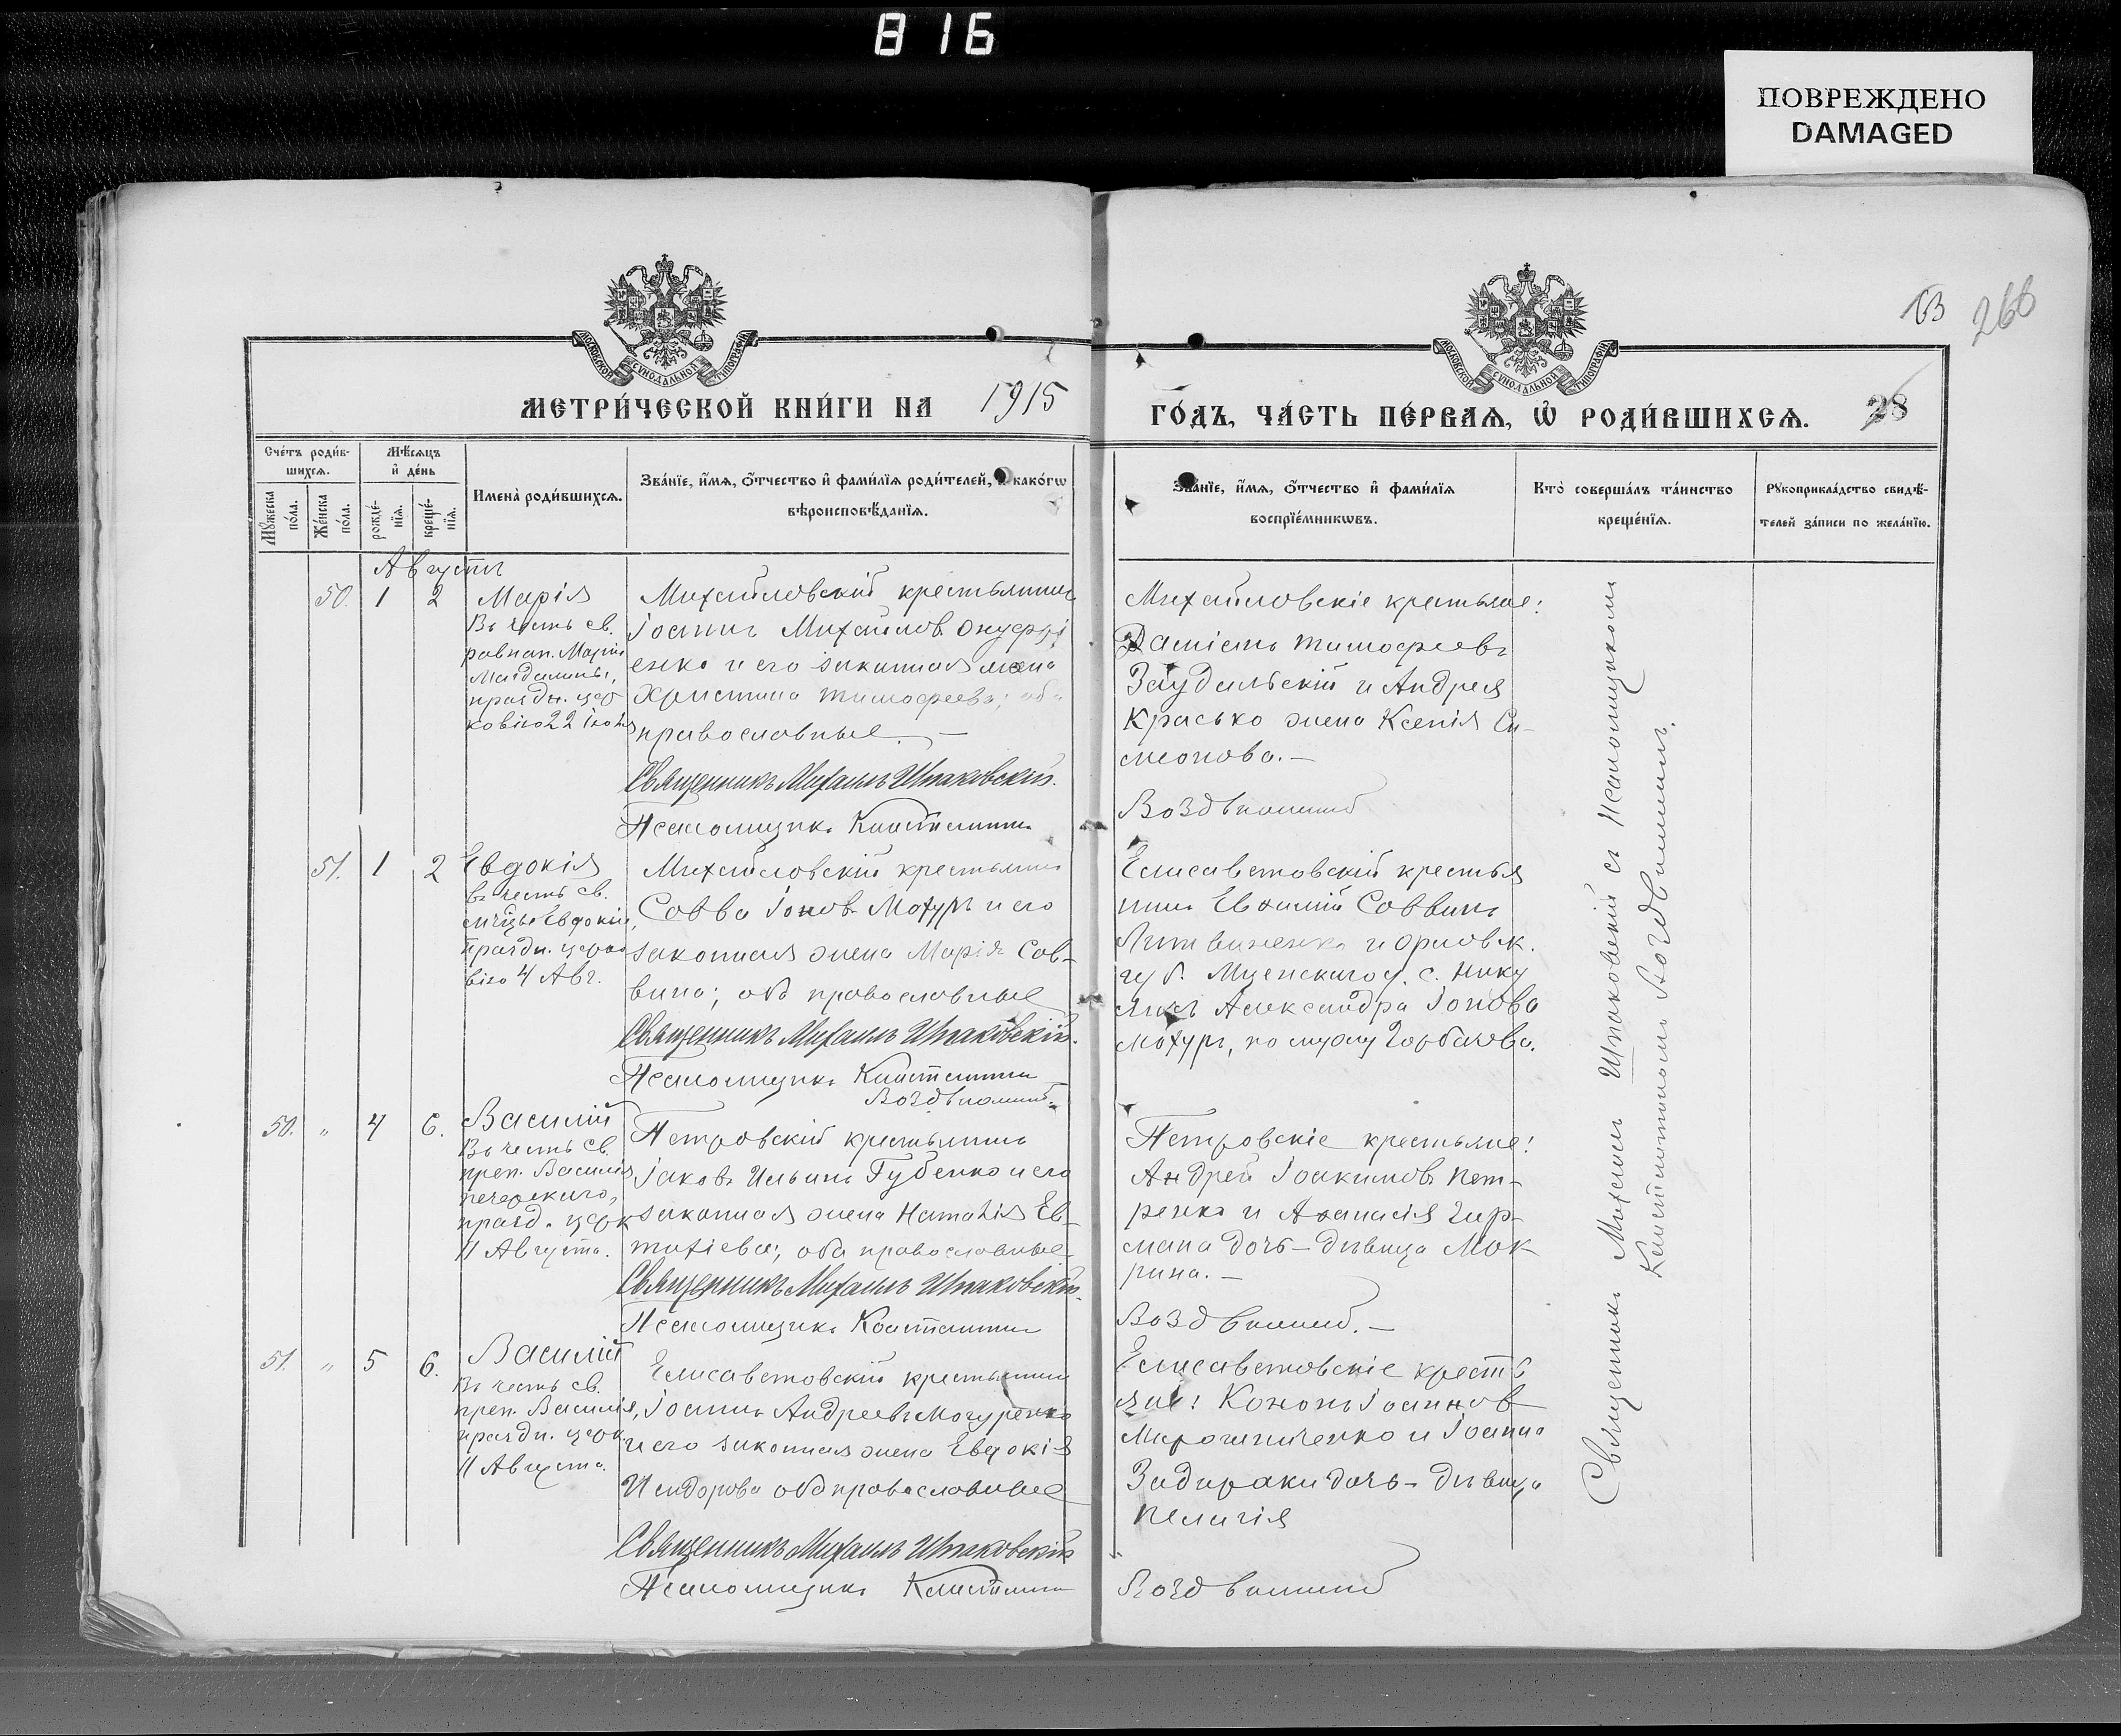 816
ПОВРЕЖДЕНО
DAMAGED
МОСКОВСКОЙ СУНОДАЛЬНОЙ ТИПОГРАФІИ
МОСКОВСКОЙ СУНОДАЛЬНОЙ ТИПОГРАФІИ
268
МЕТРИ́ЧЕСКОЙ КНИ́ГИ НА 1915
ГО́ДЪ, ЧА́СТЬ ПЕ́РВАѦ, Ѡ҆ РОДИ́ВШИХСѦ. 28
Сче́тъ роди́в-
шихсѧ.
Мѣ́сѧцъ
и҆ де́нь
Мꙋ́жеска
по́ла.
Же́нска
по́ла.
рожде́-
нїѧ.
креще́-
нїѧ.
Имена̀ роди́вшихсѧ.
Зва́нїе, и҆́мѧ, ѻ҆́тчество и҆ фами́лїѧ роди́телей, и҆ како́гѡ
вѣроисповѣ́данїѧ.
Зва́нїе, и҆́мѧ, ѻ҆́тчество и҆ фами́лїѧ
воспрїе́мникѡвъ.
Кто̀ соверша́лъ та́инство
креще́нїѧ.
Рꙋкоприкла́дство свидѣ́-
телей за́писи по жела́нїю.
Августъ
50. 1 2
Марія
Въ честь св.
равноап. Маріи
Магдалины,
праздн. цер
ковію 22 Іюля
Михайловскій крестьянинъ
Іоаннъ Михайловъ Онуфрі
енко и его законная жена
Христина Тимофеева; оба
православные. —
Священникъ Михаилъ Шпаковскій.
Псаломщикъ Константинъ
Михайловскіе крестьяне:
Даміанъ Тимофеевъ
Заудальскій и Андрея
Красько жена Ксенія Си-
меонова. —
Воздвиженскій
51. 1 2
Евдокія
въ честь св.
мчцы Евдокіи,
праздн. церко
вію 4 Авг.
Михайловскій крестьянинъ
Савва Іоновъ Мохуръ и его
законная жена Марія Сав-
вина; оба православные
Священникъ Михаилъ Шпаковскій.
Псаломщикъ Константинъ
Воздвиженскій.
Елисаветовскій крестья
нинъ Евѳимій Саввинъ
Литвиненко и Орловск.
губ. Мценскаго у. с.
Александра Іонова
Мохуръ, по мужу Горбачева.
50. „ 4 6.
Василій
Въ честь св.
преп. Василія
печерскаго,
празд. церк
11 Августа.
Петровскій крестьянинъ
Іаковъ Ильинъ Губенко и его
законная жена Наталія Ев-
тихіева; оба православные
Священникъ Михаилъ Шпаковскій.
Псаломщикъ Константинъ
Петровскіе крестьяне:
Андрей Іоакимовъ Пет-
ренко и Аѳанасія Гир-
мана дочь – дѣвица Мок-
рина. —
Воздвиженскій. —
51. „ 5 6.
Василій
Въ честь св.
преп. Василія,
праздн. церк.
11 Августа.
Елисаветовскій крестьянинъ
Іоаннъ Андреевъ Могуренко
и его законная жена Евдокія
Исидорова оба православные
Священникъ Михаилъ Шпаковскій
Псаломщикъ Константинъ
Елисаветовскіе кресть
яне: Кононъ Іоанновъ
Мирошниченко и Іоанна
Задираки дочь – дѣвица
Пелагія
Воздвиженскій
Священникъ Михаилъ Шпаковскій съ псаломщикомъ
Константиномъ Воздвиженскимъ.